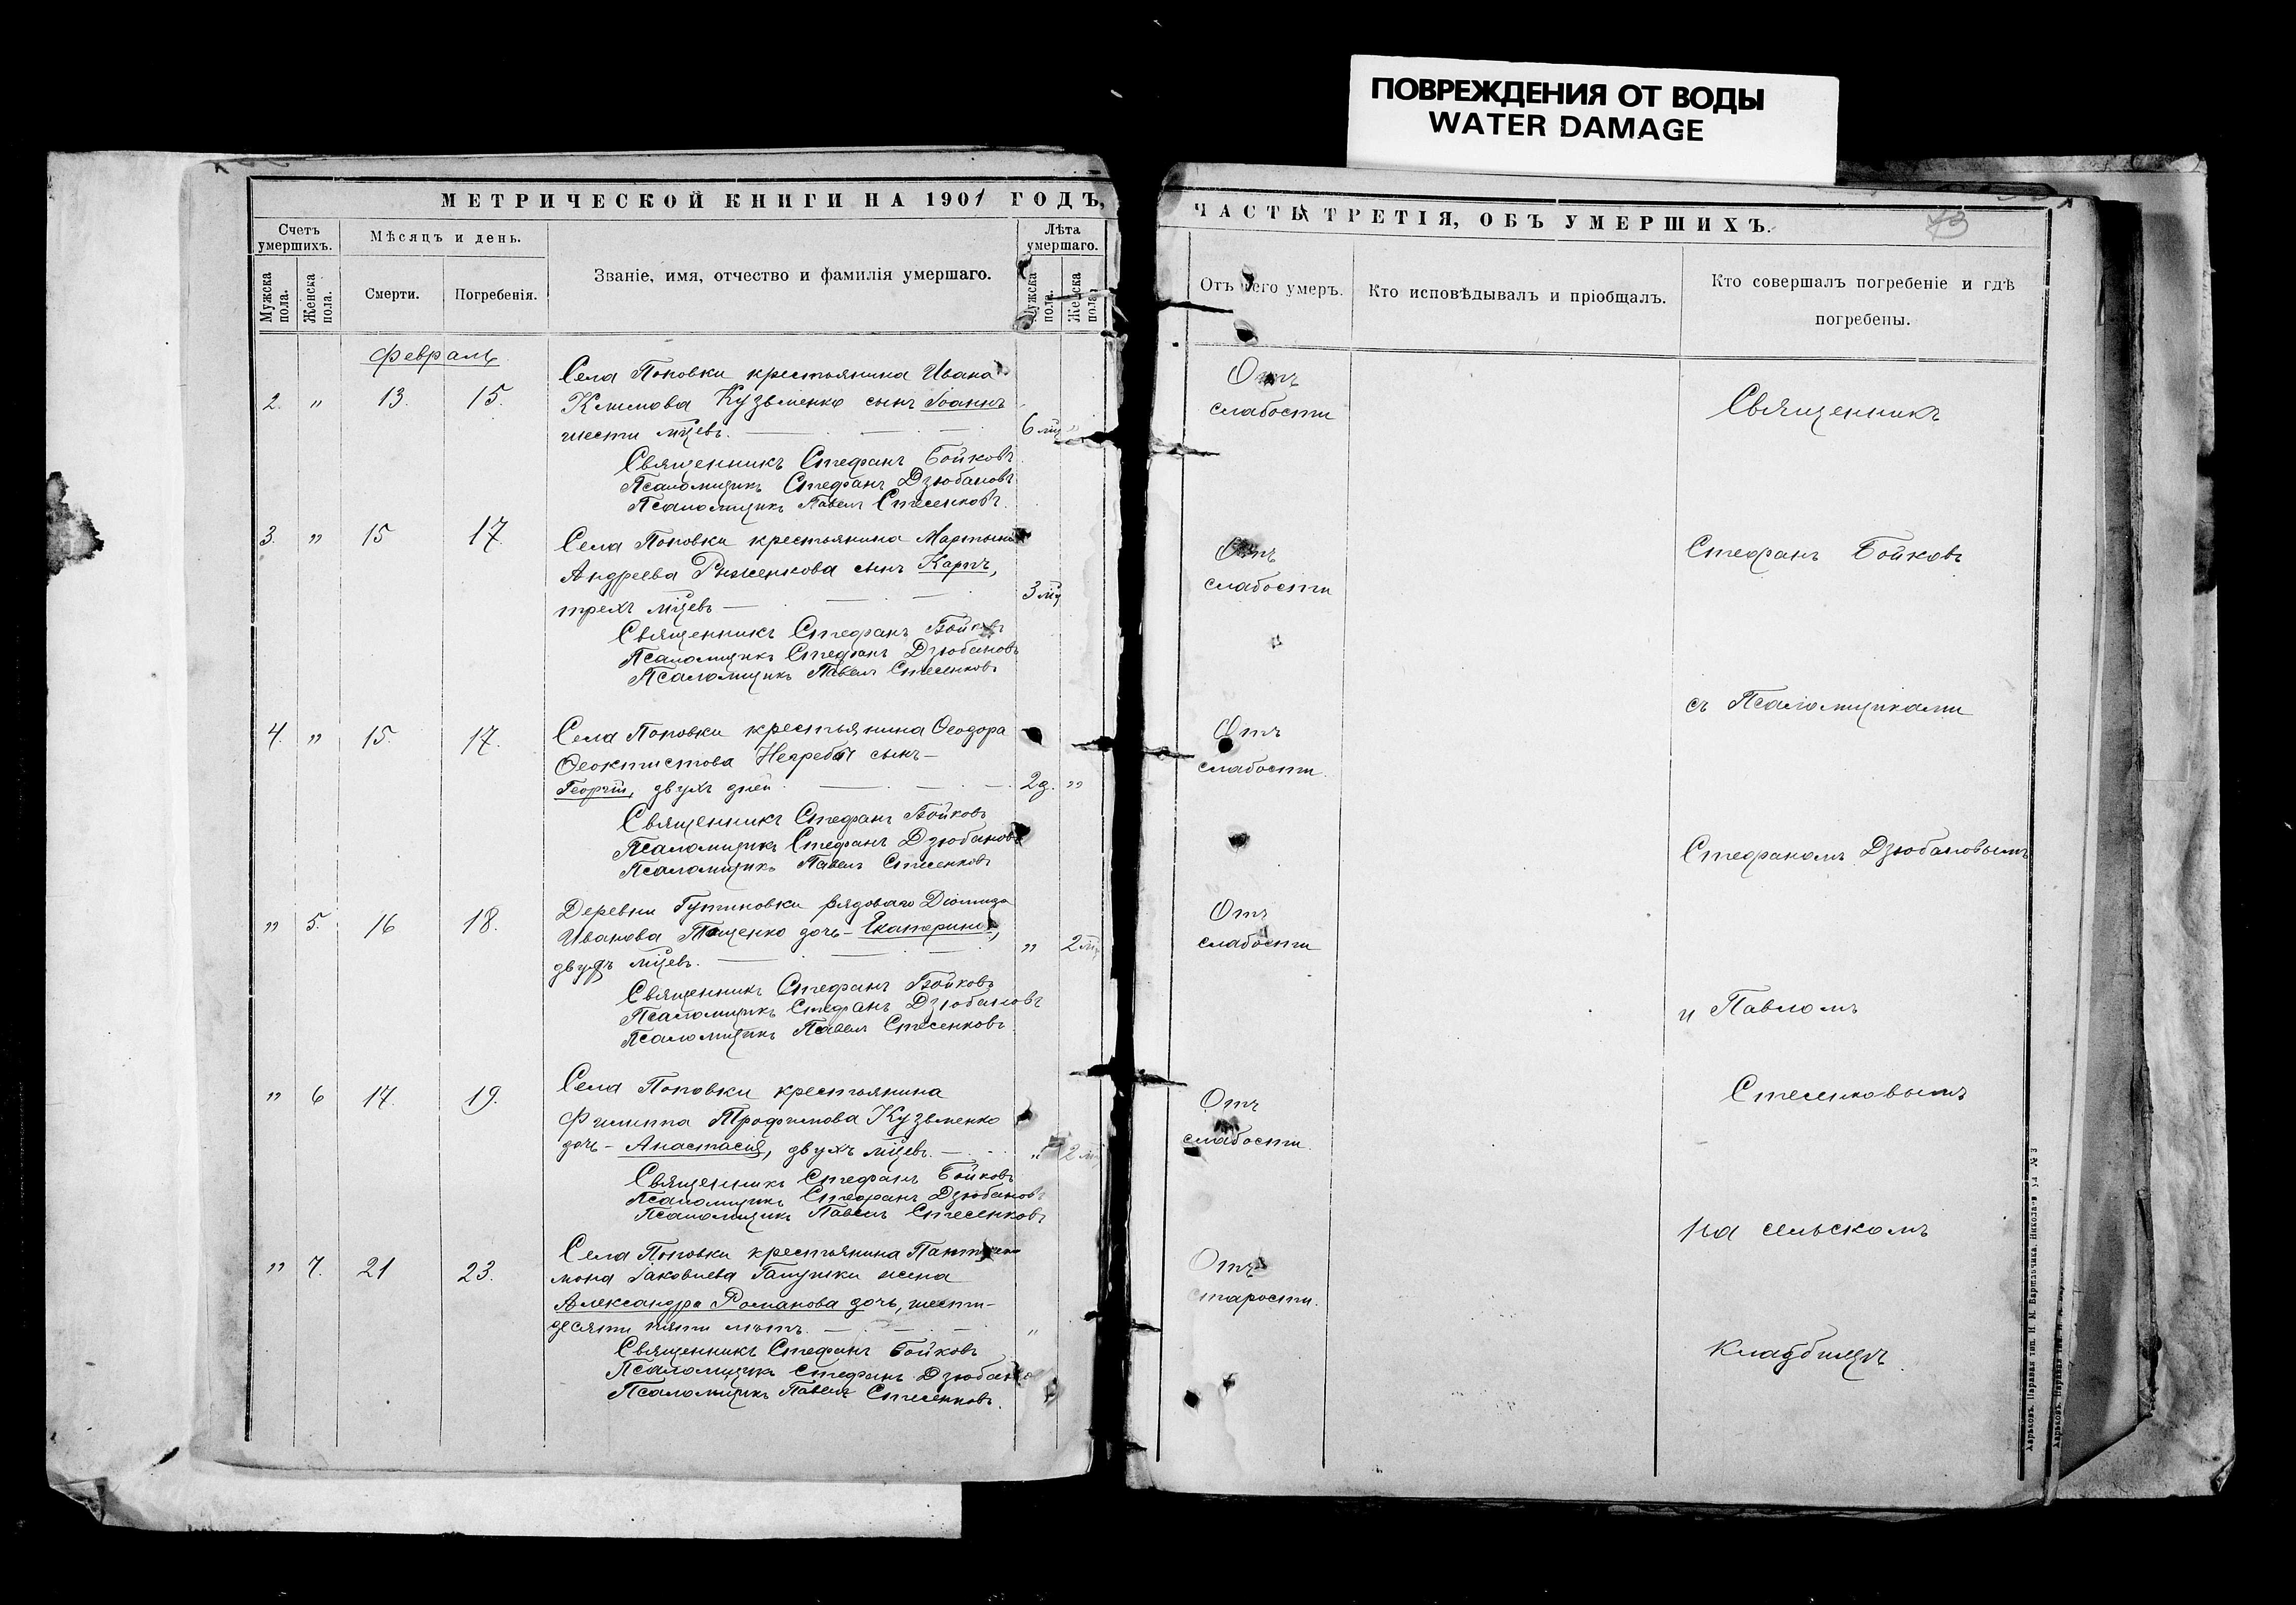 ПОВРЕЖДЕНИЯ ОТ ВОДЫ
WATER DAMAGE
МЕТРИЧЕСКОЙ КНИГИ НА 1901 ГОДЪ,
Счетъ умершихъ.
Мужска пола.
Женска пола.
Мѣсяцъ и день.
Смерти.
Погребенія.
Званіе, имя, отчество и фамилія умершаго.
Лѣта умершаго.
Мужска пола.
Женска пола.
Февраль
2. " 13. 15.
Села Поповки крестьянина Ивана
Климова Кузьменко сынъ Іоаннъ
шести мцевъ. 6 мц "
Священникъ Стефанъ Бойковъ
Псаломщикъ Стефанъ Дзюбановъ
Псаломщикъ Павелъ Стесенковъ.
3. " 15 17.
Села Поповки крестьянина Мартына
Андреева Рыженкова сынъ Карпъ,
трехъ мцевъ 3 мц
Священникъ Стефанъ Бойковъ
Псаломщикъ Стефанъ Дзюбановъ
Псаломщикъ Павелъ Стесенковъ
4. " 15. 17.
Села Поповки крестьянина Ѳеодора
Ѳеоктистова Негребы сынъ
Георгій, двухъ дней 2 д. "
Священникъ Стефанъ Бойковъ
Псаломщикъ Стефанъ Дзюбановъ
Псаломщикъ Павелъ Стесенковъ
" 5. 16 18.
Деревни рядоваго Діомида
Иванова дочь – Екатерина,
двухъ мцевъ. " 2 мц
Священникъ Стефанъ Бойковъ
Псаломщикъ Стефанъ Дзюбановъ
Псаломщикъ Павелъ Стесенковъ
" 6 17. 19.
Села Поповки крестьянина
Филиппа Трофимова Кузьменко
дочь – Анастасія, двухъ мцевъ. " 2 мц
Священникъ Стефанъ Бойковъ
Псаломщикъ Стефанъ Дзюбановъ
Псаломщикъ Павелъ Стесенковъ
" 7. 21 23.
Села Поповки крестьянина Пантелеи
мона Іаковлева Галушки жена
Александра Романова дочь, шести-
десяти пяти лѣтъ. "
Священникъ Стефанъ Бойковъ
Псаломщикъ Стефанъ Дзюбановъ
Псаломщикъ Павелъ Стесенковъ.
ЧАСТЬ ТРЕТІЯ, ОБЪ УМЕРШИХЪ.
73
Отъ чего умеръ.
Кто исповѣдывалъ и пріобщалъ.
Кто совершалъ погребеніе и гдѣ
погребены.
Отъ
слабости
Священникъ
Отъ
слабости
Стефанъ Бойковъ
съ Псаломщиками
Отъ
слабости.
Стефаномъ Дзюбановымъ
Отъ
слабости
и Павломъ
Стесенковымъ
Отъ
слабости.
на сельскомъ
Отъ
старости.
кладбищѣ.